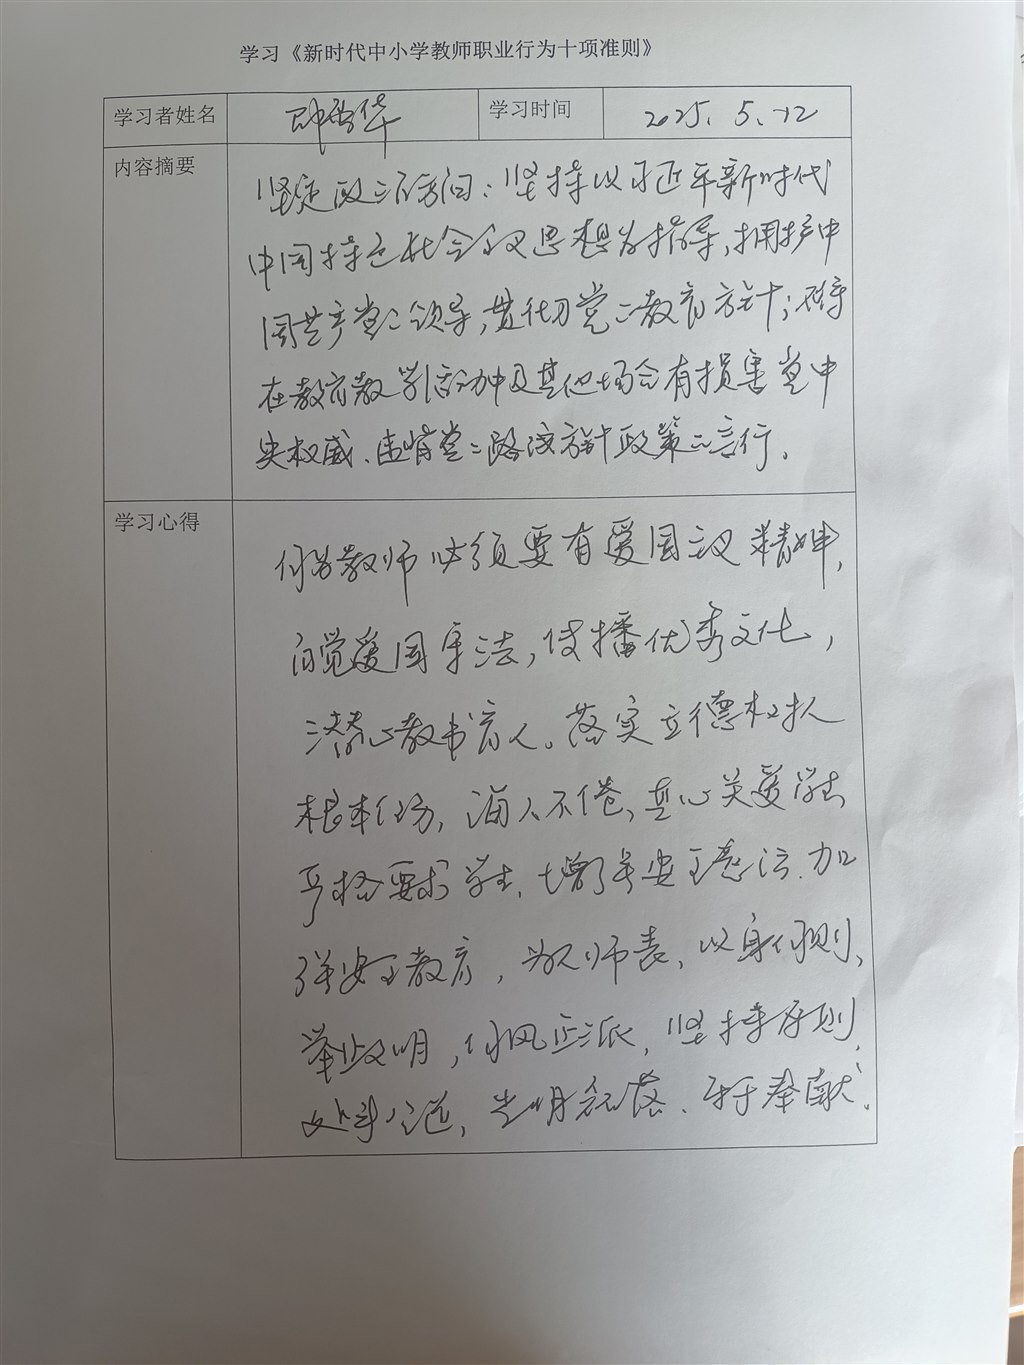 学习《新时代中小学教师职业行为十项准则》
学习者姓名
学习时间 2025.5.12
内容摘要
坚定政治方向：坚持以习近平新时代
中国特色社会主义思想为指导，拥护中
国共产党的领导，贯彻党的教育方针；不得
在教育教学活动中及其他场合有损害党中
央权威、违背党的路线方针政策的言行。
学习心得
作为教师必须要有爱国主义精神，
自觉爱国守法，传播优秀文化，
潜心教书育人。落实立德树人
根本任务，诲人不倦，真心关爱学生，
严格要求学生，增强安全意识，加
强安全教育，为人师表，以身作则，
举止文明，作风正派，坚持原则，
处事公道，光明磊落、乐于奉献。